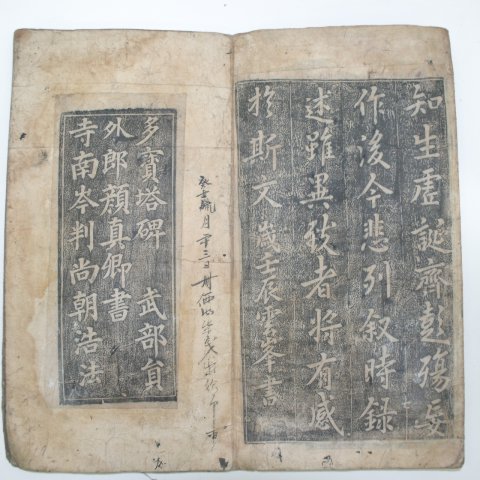 知生虛誕齊彭殤妄
作後今悲列叙時錄
述雖異攸者將有感
扵斯文 歲壬辰雲峯書
月 三日
多寳塔碑 武部員
外郎顏真卿書
寺南岑判尚朝浩法